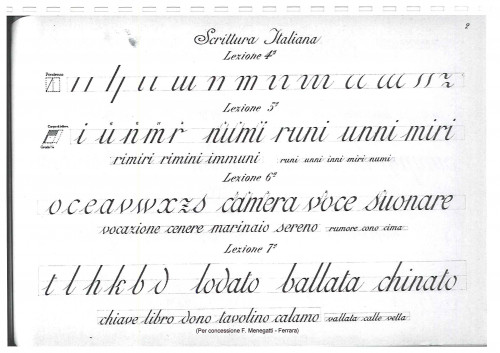 2
Scrittura Italiana
Lezione 4ª
Pendenza
ıı ı/ı ıı ııı n m ıı ııı
Lezione 5ª
i ü n m r numi runi unni miri
rimiri rimini immuni runi unni inni miri numi
Lezione 6ª
o c e a v w x z s camera voce suonare
vocazione cenere marinaio sereno rumore cono cima
Lezione 7ª
t l h k b d lodato ballata chinato
chiave libro dono tavolino calamo vallata calle vella
(Per concessione F. Menegatti - Ferrara)